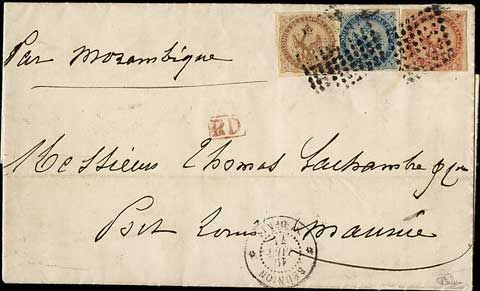 Par Mozambique
PD
Messieurs Thomas Lachambre & Cie
Port Louis Maurice
REUNION